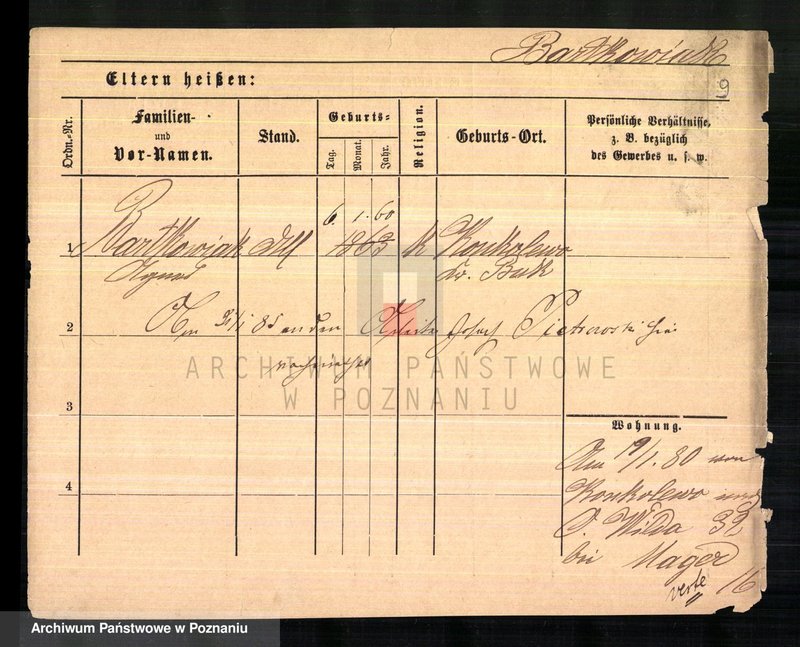 Bartkowiak
Eltern heißen:
Ordn.-Nr.
Familien- und Vor-Namen.
Stand.
Geburts-
Tag.
Monat.
Jahr.
Religion.
Geburts-Ort.
Persönliche Verhältnisse, z. B. bezüglich des Gewerbes u. s. w.
6. 1. 60
1 Bartkowiak 1863 k Konkolewo
Agnes Kr. Buk
2 Am 21/1 85 an den Arbeiter Josef Pietrowski hier
3
4
Wohnung.
Am 19/1. 80 von
Konkolewo nach
O. Wilda 32
bei Mager
verte 16
ARCHIWUM PAŃSTWOWE
W POZNANIU
Archiwum Państwowe w Poznaniu